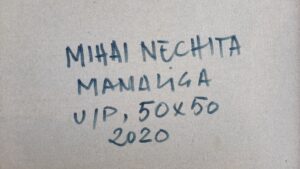 MIHAI NECHITA
MAMALIGA
U/P, 50X50
2020